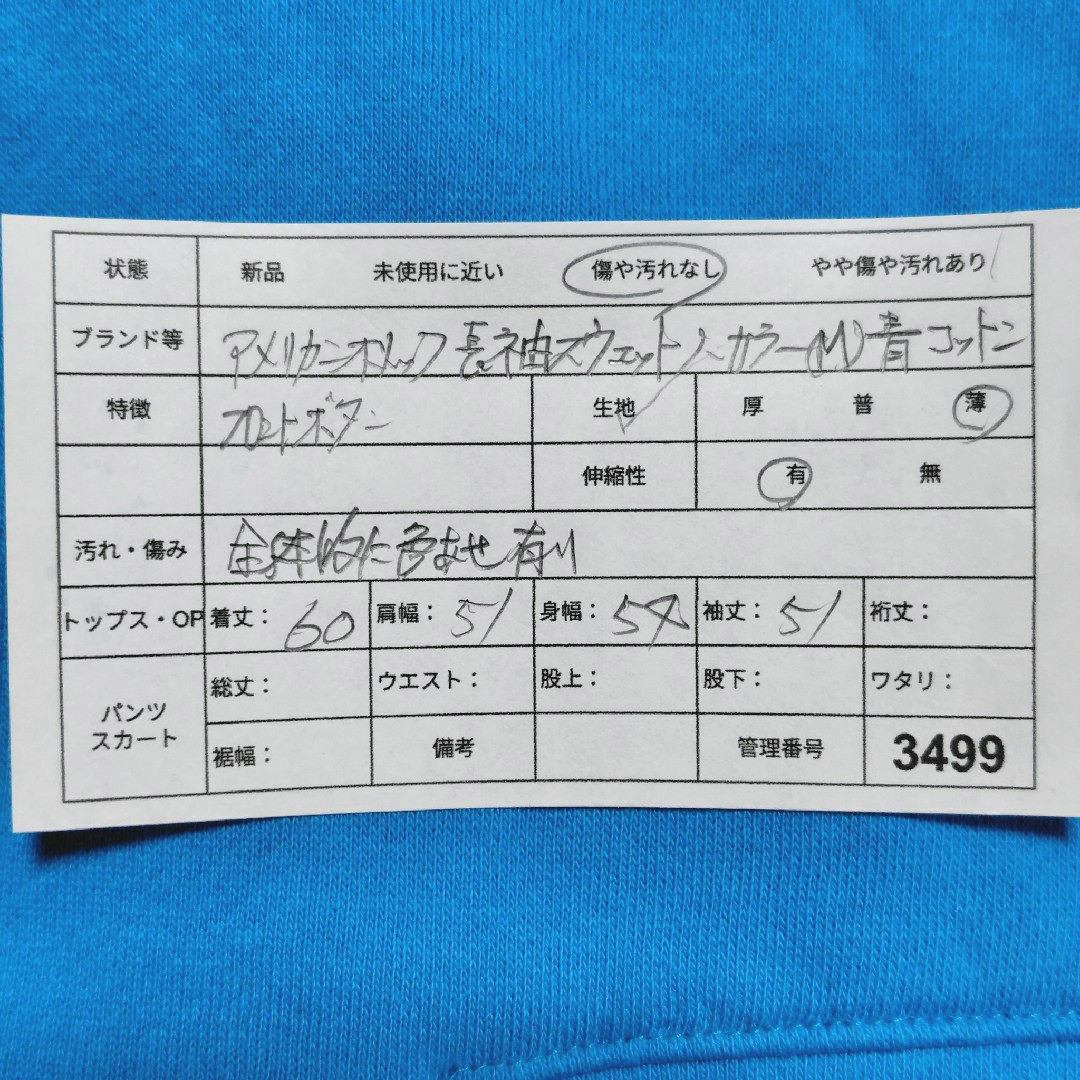 状態 新品 未使用に近い 傷や汚れなし やや傷や汚れあり
ブランド等 アメリカンホリック 長袖スウェット ノーカラー (M) 青 コットン
特徴 フロントボタン 生地 厚 普 薄
伸縮性 有 無
汚れ・傷み 全体的に色あせ有り
トップス・OP 着丈: 60 肩幅: 51 身幅: 54 袖丈: 51 裄丈:
パンツ スカート 総丈: ウエスト: 股上: 股下: ワタリ:
裾幅: 備考 管理番号 3499